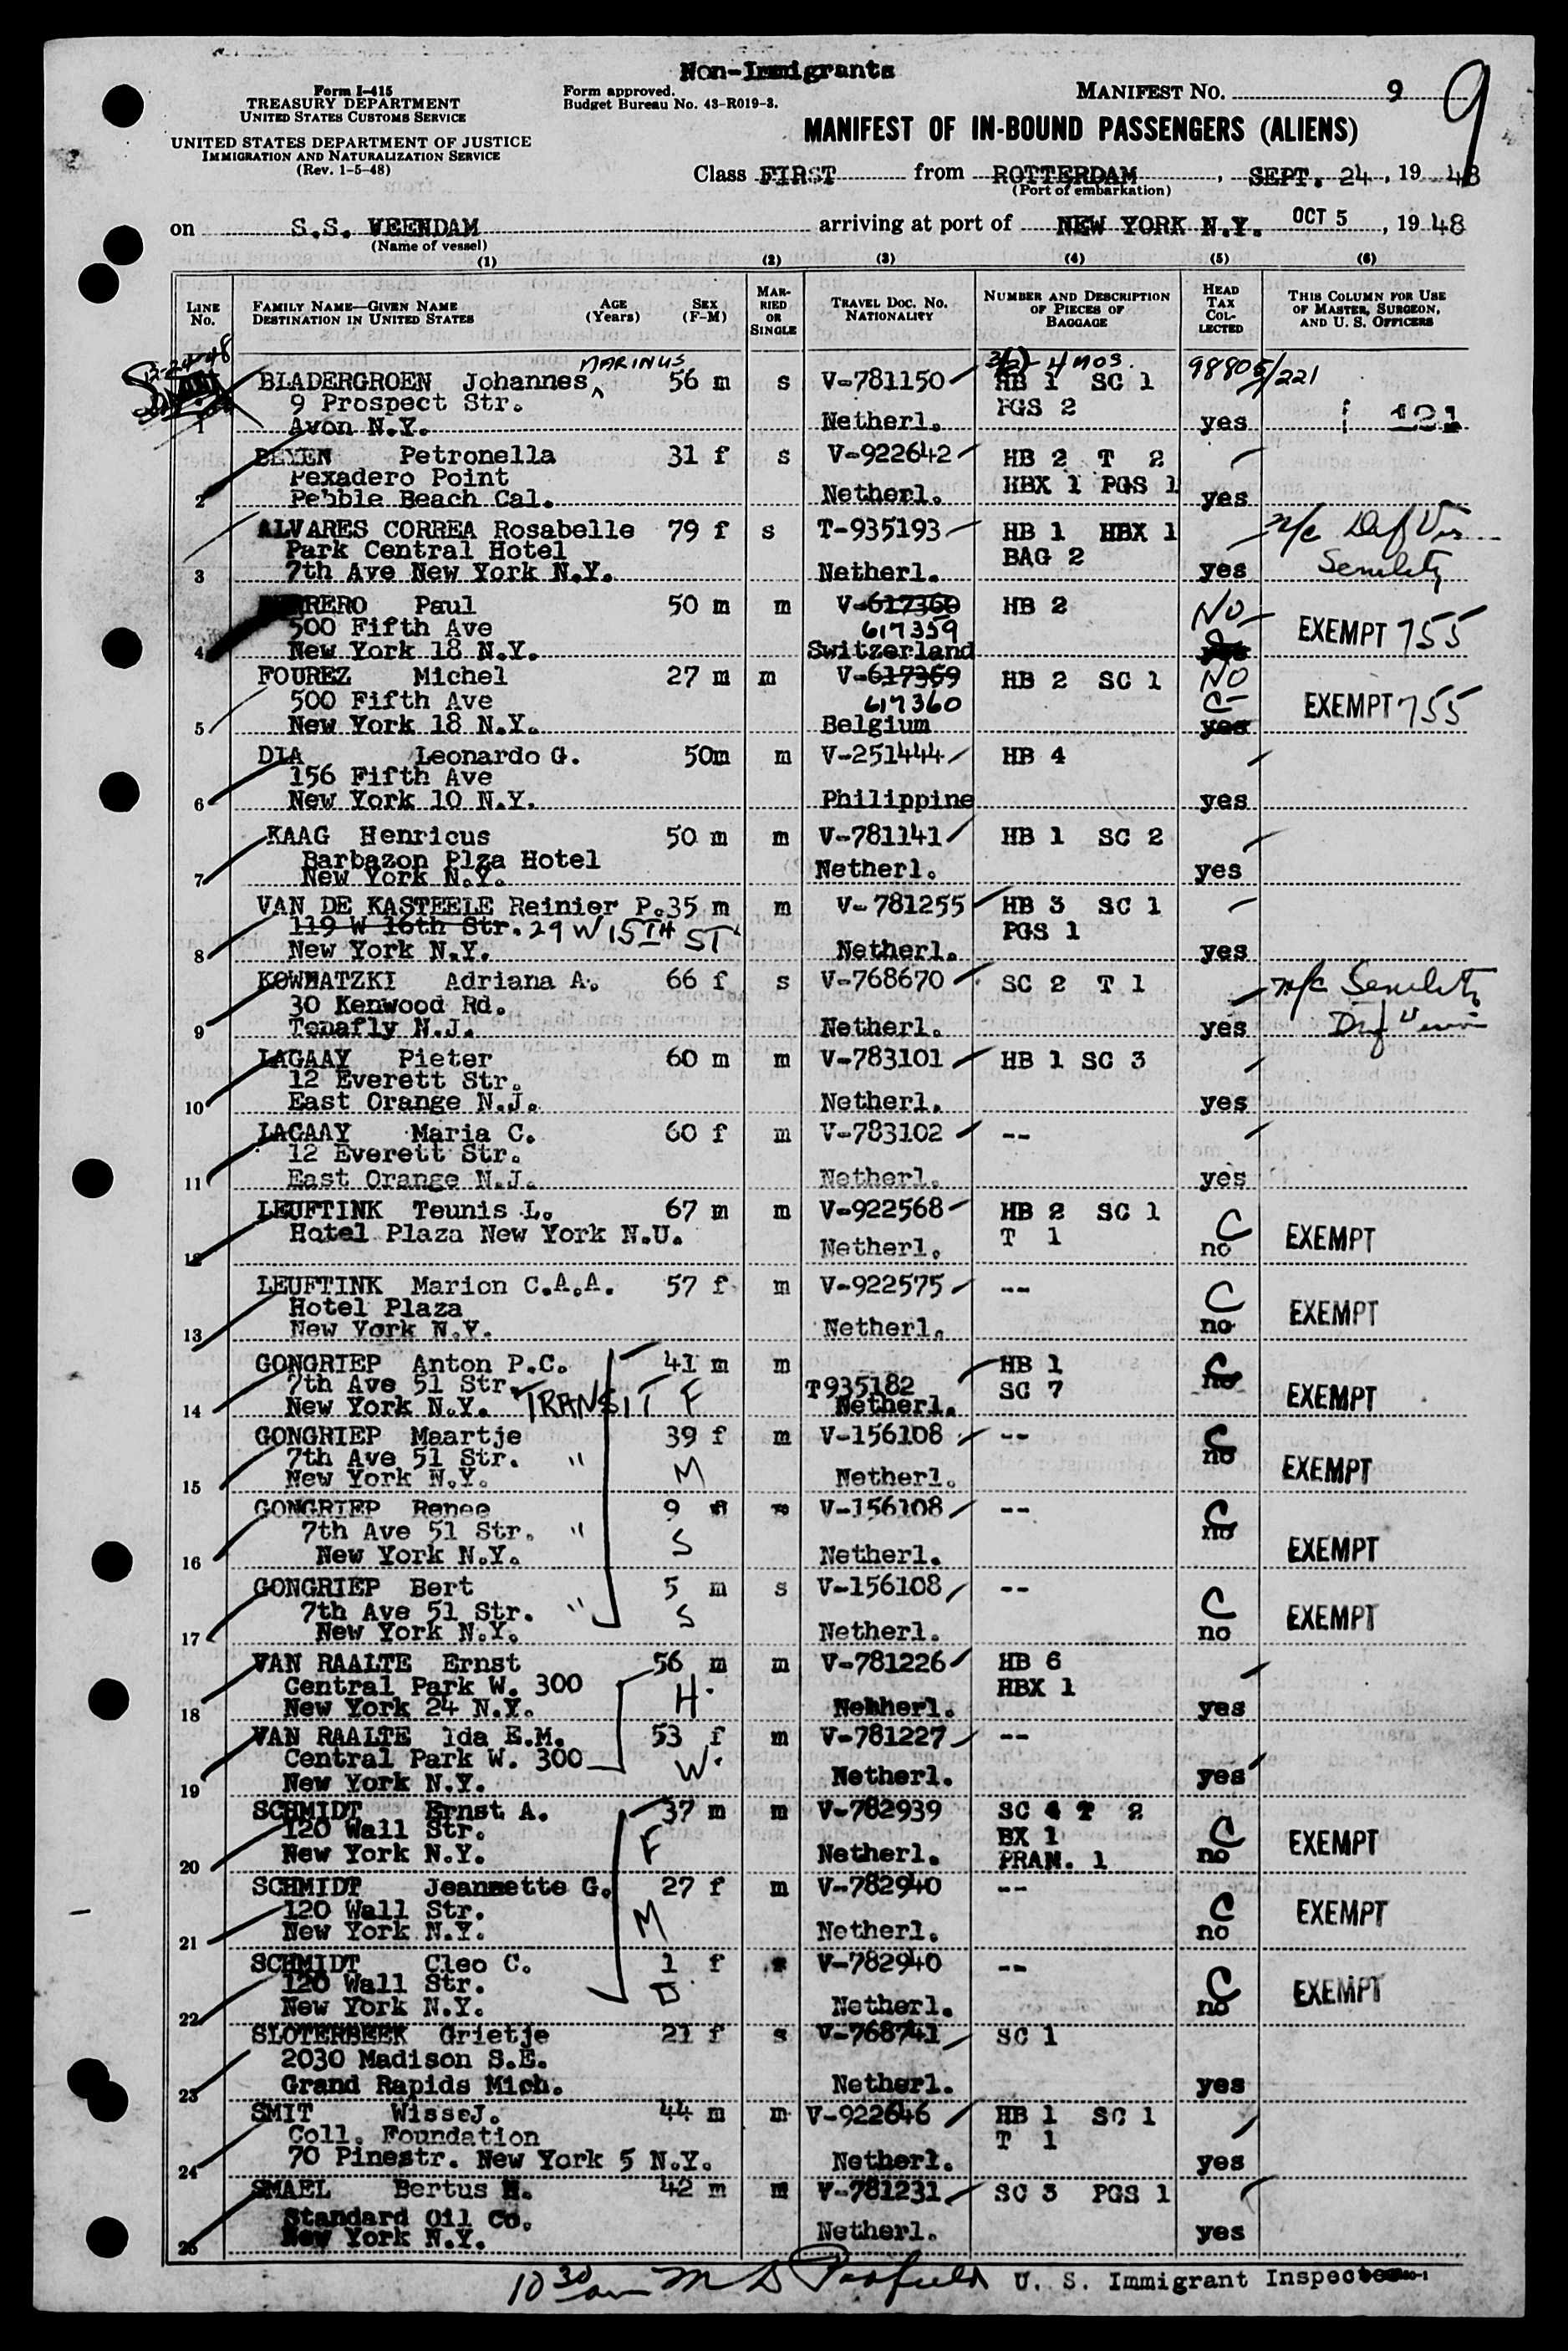 Non-Immigrants
Form I-415
TREASURY DEPARTMENT
UNITED STATES CUSTOMS SERVICE
UNITED STATES DEPARTMENT OF JUSTICE
IMMIGRATION AND NATURALIZATION SERVICE
(Rev. 1-5-48)
Form approved.
Budget Bureau No. 43-R019-3.
MANIFEST NO. 9
9
MANIFEST OF IN-BOUND PASSENGERS (ALIENS)
Class FIRST from ROTTERDAM, SEPT. 24, 19 48
(Port of embarkation)
on S.S. VEENDAM arriving at port of NEW YORK N.Y. OCT 5, 19 48
(Name of vessel)
(1) (2) (3) (4) (5) (6)
LINE No.
FAMILY NAME—GIVEN NAME
DESTINATION IN UNITED STATES
AGE (Years)
SEX (F-M)
MARRIED OR SINGLE
TRAVEL DOC. NO. NATIONALITY
NUMBER AND DESCRIPTION OF PIECES OF BAGGAGE
HEAD TAX COLLECTED
THIS COLUMN FOR USE OF MASTER, SURGEON, AND U. S. OFFICERS
MARINUS 4 mos. 98805/221
BLADERGROEN Johannes 56 m s V-781150 HB 1 SC 1
9 Prospect Str. PGS 2
1 Avon N.Y. Netherl. yes 121
BEYEN Petronella 31 f s V-922642 HB 2 T 2
Pexadero Point HBX 1 PGS 1
2 Pebble Beach Cal. Netherl. yes
ALVARES CORREA Rosabelle 79 f s T-935193 HB 1 HBX 1 m/c Def Vis
Park Central Hotel BAG 2
3 7th Ave New York N.Y. Netherl. yes Senility
RERO Paul 50 m m V-617360 HB 2 NO
500 Fifth Ave 617359 EXEMPT 755
4 New York 18 N.Y. Switzerland
FOUREZ Michel 27 m m V-617359 HB 2 SC 1 NO
500 Fifth Ave 617360 C- EXEMPT 755
5 New York 18 N.Y. Belgium yes
DIA Leonardo G. 50m m V-251444 HB 4
156 Fifth Ave
6 New York 10 N.Y. Philippine yes
KAAG Henricus 50 m m V-781141 HB 1 SC 2
Barbazon Plza Hotel
7 New York N.Y. Netherl. yes
VAN DE KASTEELE Reinier P. 35 m m V-781255 HB 3 SC 1
119 W 16th Str. 29 W 15TH ST PGS 1
8 New York N.Y. Netherl. yes
KOWNATZKI Adriana A. 66 f s V-768670 SC 2 T 1 m/c Senility
30 Kenwood Rd.
9 Tenafly N.J. Netherl. yes
LAGAAY Pieter 60 m m V-783101 HB 1 SC 3
12 Everett Str.
10 East Orange N.J. Netherl. yes
LAGAAY Maria C. 60 f m V-783102 --
12 Everett Str.
11 East Orange N.J. Netherl. yes
LEUFTINK Teunis L. 67 m m V-922568 HB 2 SC 1
Hotel Plaza New York N.U. T 1 C EXEMPT
12 Netherl. no
LEUFTINK Marion C.A.A. 57 f m V-922575 -- C
Hotel Plaza EXEMPT
13 New York N.Y. Netherl. no
GONGRIEP Anton P.C. 41 m m HB 1 C
7th Ave 51 Str. T935182 SC 7 no EXEMPT
14 New York N.Y. TRANSIT F Netherl.
GONGRIEP Maartje 39 f m V-156108 -- C
7th Ave 51 Str. " no
15 New York N.Y. M Netherl. EXEMPT
GONGRIEP Renee 9 V-156108 -- C
7th Ave 51 Str. " S no
16 New York N.Y. Netherl. EXEMPT
GONGRIEP Bert 5 m s V-156108 -- C
7th Ave 51 Str. " S EXEMPT
17 New York N.Y. Netherl. no
VAN RAALTE Ernst 56 m m V-781226 HB 6
Central Park W. 300 H. HBX 1
18 New York 24 N.Y. Netherl. yes
VAN RAALTE Ida E.M. 53 f m V-781227 --
Central Park W. 300 W.
19 New York N.Y. Netherl. yes
SCHMIDT Ernst A. 37 m m V-782939 SC 4 T 2
120 Wall Str. F BX 1 C EXEMPT
20 New York N.Y. Netherl. PRAM. 1 no
SCHMIDT Jeannette G. 27 f m V-782940 --
120 Wall Str. M C EXEMPT
21 New York N.Y. Netherl. no
SCHMIDT Cleo C. 1 f V-782940 --
120 Wall Str. D C EXEMPT
22 New York N.Y. Netherl. no
SLOTERBEEK Grietje 21 f s V-768741 SC 1
2030 Madison S.E.
23 Grand Rapids Mich. Netherl. yes
SMIT Wisse J. 44 m m V-922646 HB 1 SC 1
Coll. Foundation T 1
24 70 Pinestr. New York 5 N.Y. Netherl. yes
SMAEL Bertus H. 42 m m V-781231 SC 3 PGS 1
Standard Oil Co.
25 New York N.Y. Netherl. yes
10 30 am U. S. Immigrant Inspector